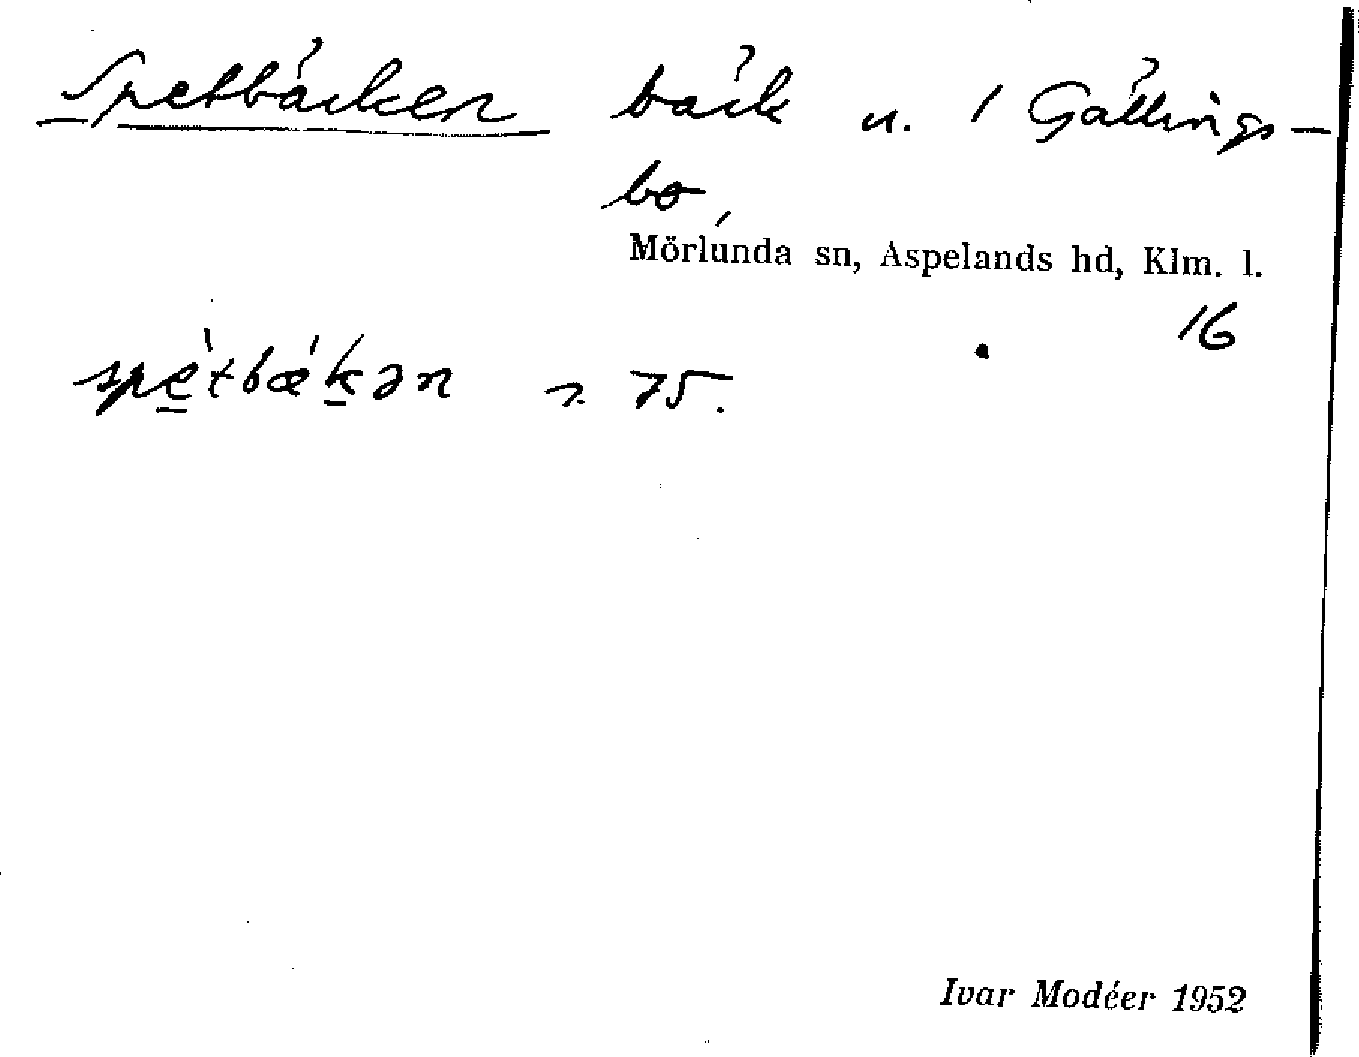 Spetbäcken bäck u. / Gällings-
bo,
Mörlunda sn, Aspelands hd, Klm. l.
16
spè̱tbæ̀ḵən 75.
Ivar Modéer 1952